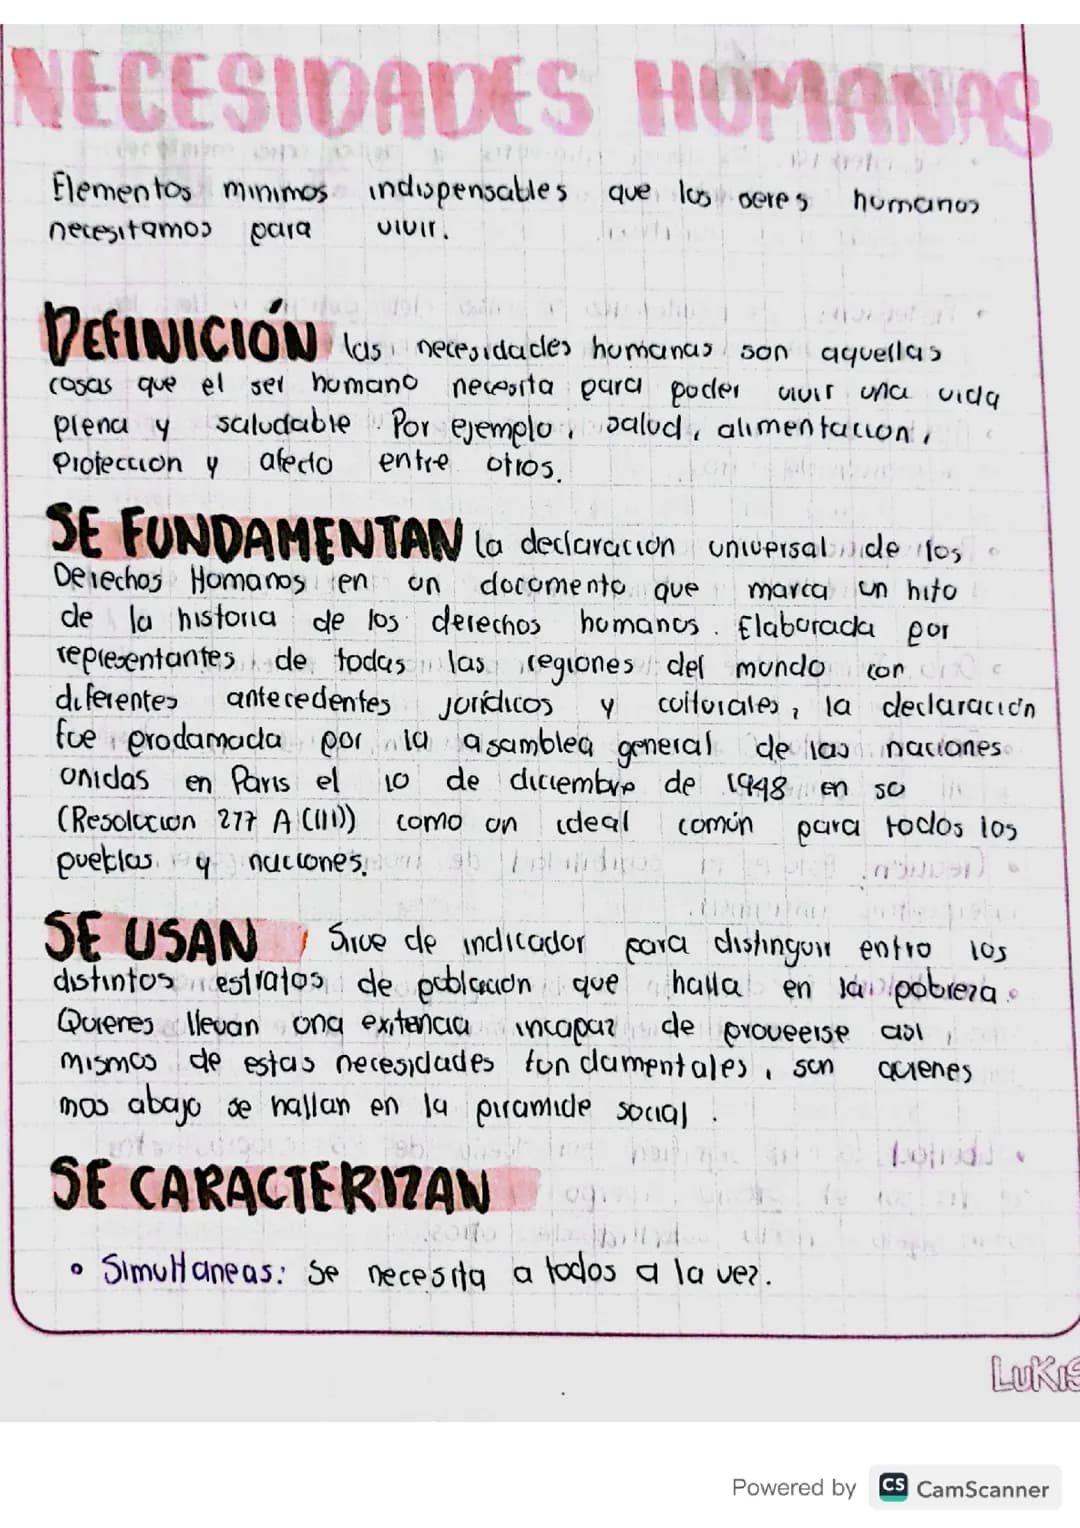 NECESIDADES HUMANAS
Elementos minimos indispensables que los seres humanos
necesitamos para vivir.
DEFINICIÓN las necesidades humanas son aquellas
cosas que el ser humano necesita para poder vivir una vida
plena y saludable. Por ejemplo, salud, alimentacion,
Proteccion y afecto entre otros.
SE FUNDAMENTAN la declaracion universal de los
Derechos Humanos en un documento que marca un hito
de la historia de los derechos humanos. Elaborada por
representantes de todas las regiones del mundo con
diferentes antecedentes jurídicos y culturales, la declaración
fue proclamada por la asamblea general de las naciones
unidas en Paris el 10 de diciembre de 1948 en su
(Resolucion 277 A (III)) como un ideal común para todos los
pueblos y naciones.
SE USAN Sirve de indicador para distinguir entro los
distintos estratos de poblacion que halla en la pobreza.
Quienes llevan una exitencia incapaz de proveerse asi
mismos de estas necesidades fundamentales, son quienes
mas abajo se hallan en la piramide social.
SE CARACTERIZAN
• Simultaneas: Se necesita a todos a la vez.
LUKIS
Powered by CS CamScanner